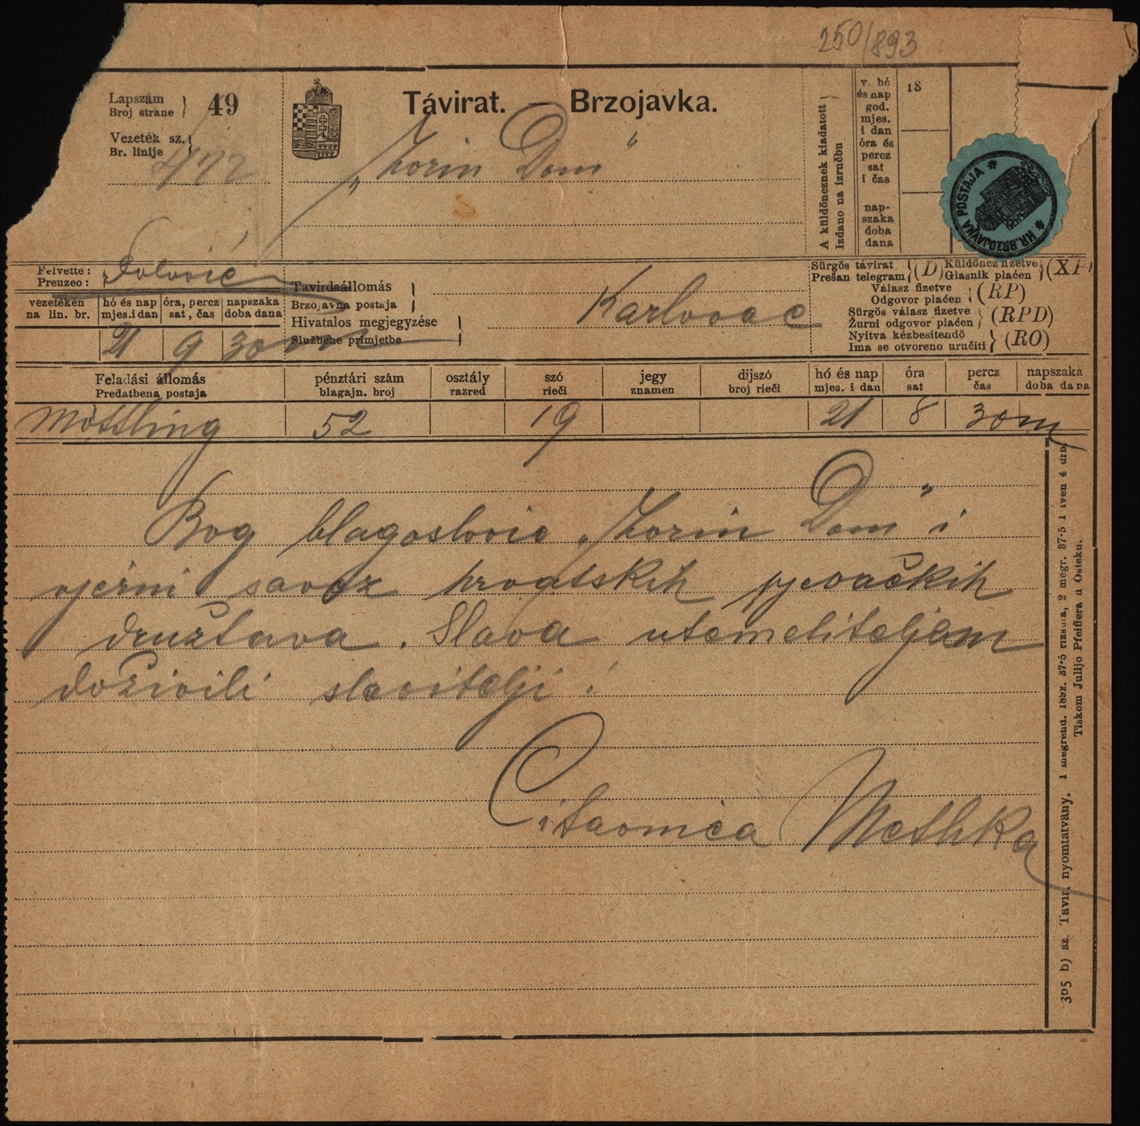 250/893
Lapszám
Broj strane } 49
Vezeték sz.
Br. linije }
Távirat. — Brzojavka.
„Zorin Dom"
A küldöncznek kiadatott
Izdano na izručbu
v. hó
és nap
god.
mjes.
i dan
óra és
percz
sat
i čas
nap-
szaka
doba
dana
18
HR. BRZOJAVNA POSTAJA
Felvette:
Preuzeo:
vezetéken
na lin. br.
hó és nap
mjes. i dan
óra, percz
sat, čas
napszaka
doba dana
21 9 30 m
Távirdaállomás
Brzojavna postaja }
Hivatalos megjegyzése
Službene primjetbe }
Karlovac
Sürgös távirat
Prešan telegram } (D)
Küldöncz fizetve
Glasnik plaćen } (XP)
Válasz fizetve
Odgovor plaćen } (RP)
Sürgös válasz fizetve
Žurni odgovor plaćen } (RPD)
Nyitva kézbesitendö
Ima se otvoreno uručiti } (RO)
Feladási állomás
Predatbena postaja
pénztári szám
blagajn. broj
osztály
razred
szó
rieči
jegy
znamen
dijszó
broj rieči
hó és nap
mjes. i dan
óra
sat
percz
čas
napszaka
doba dana
Möttling 52 19 21 8 30 m
Bog blagoslovio „Zorin Dom" i
vjerni savez hrvatskih pjevačkih
družtava. Slava utemeliteljem
doživili slavitelji!
Citaonica Methka
305 b) sz. Távir. nyomtatvány. 1 megrend. 1892. 37·5 rizsma, 2 megr. 37·5 iven 4 drb.
Tiskom Julijo Pfeiffera u Osieku.